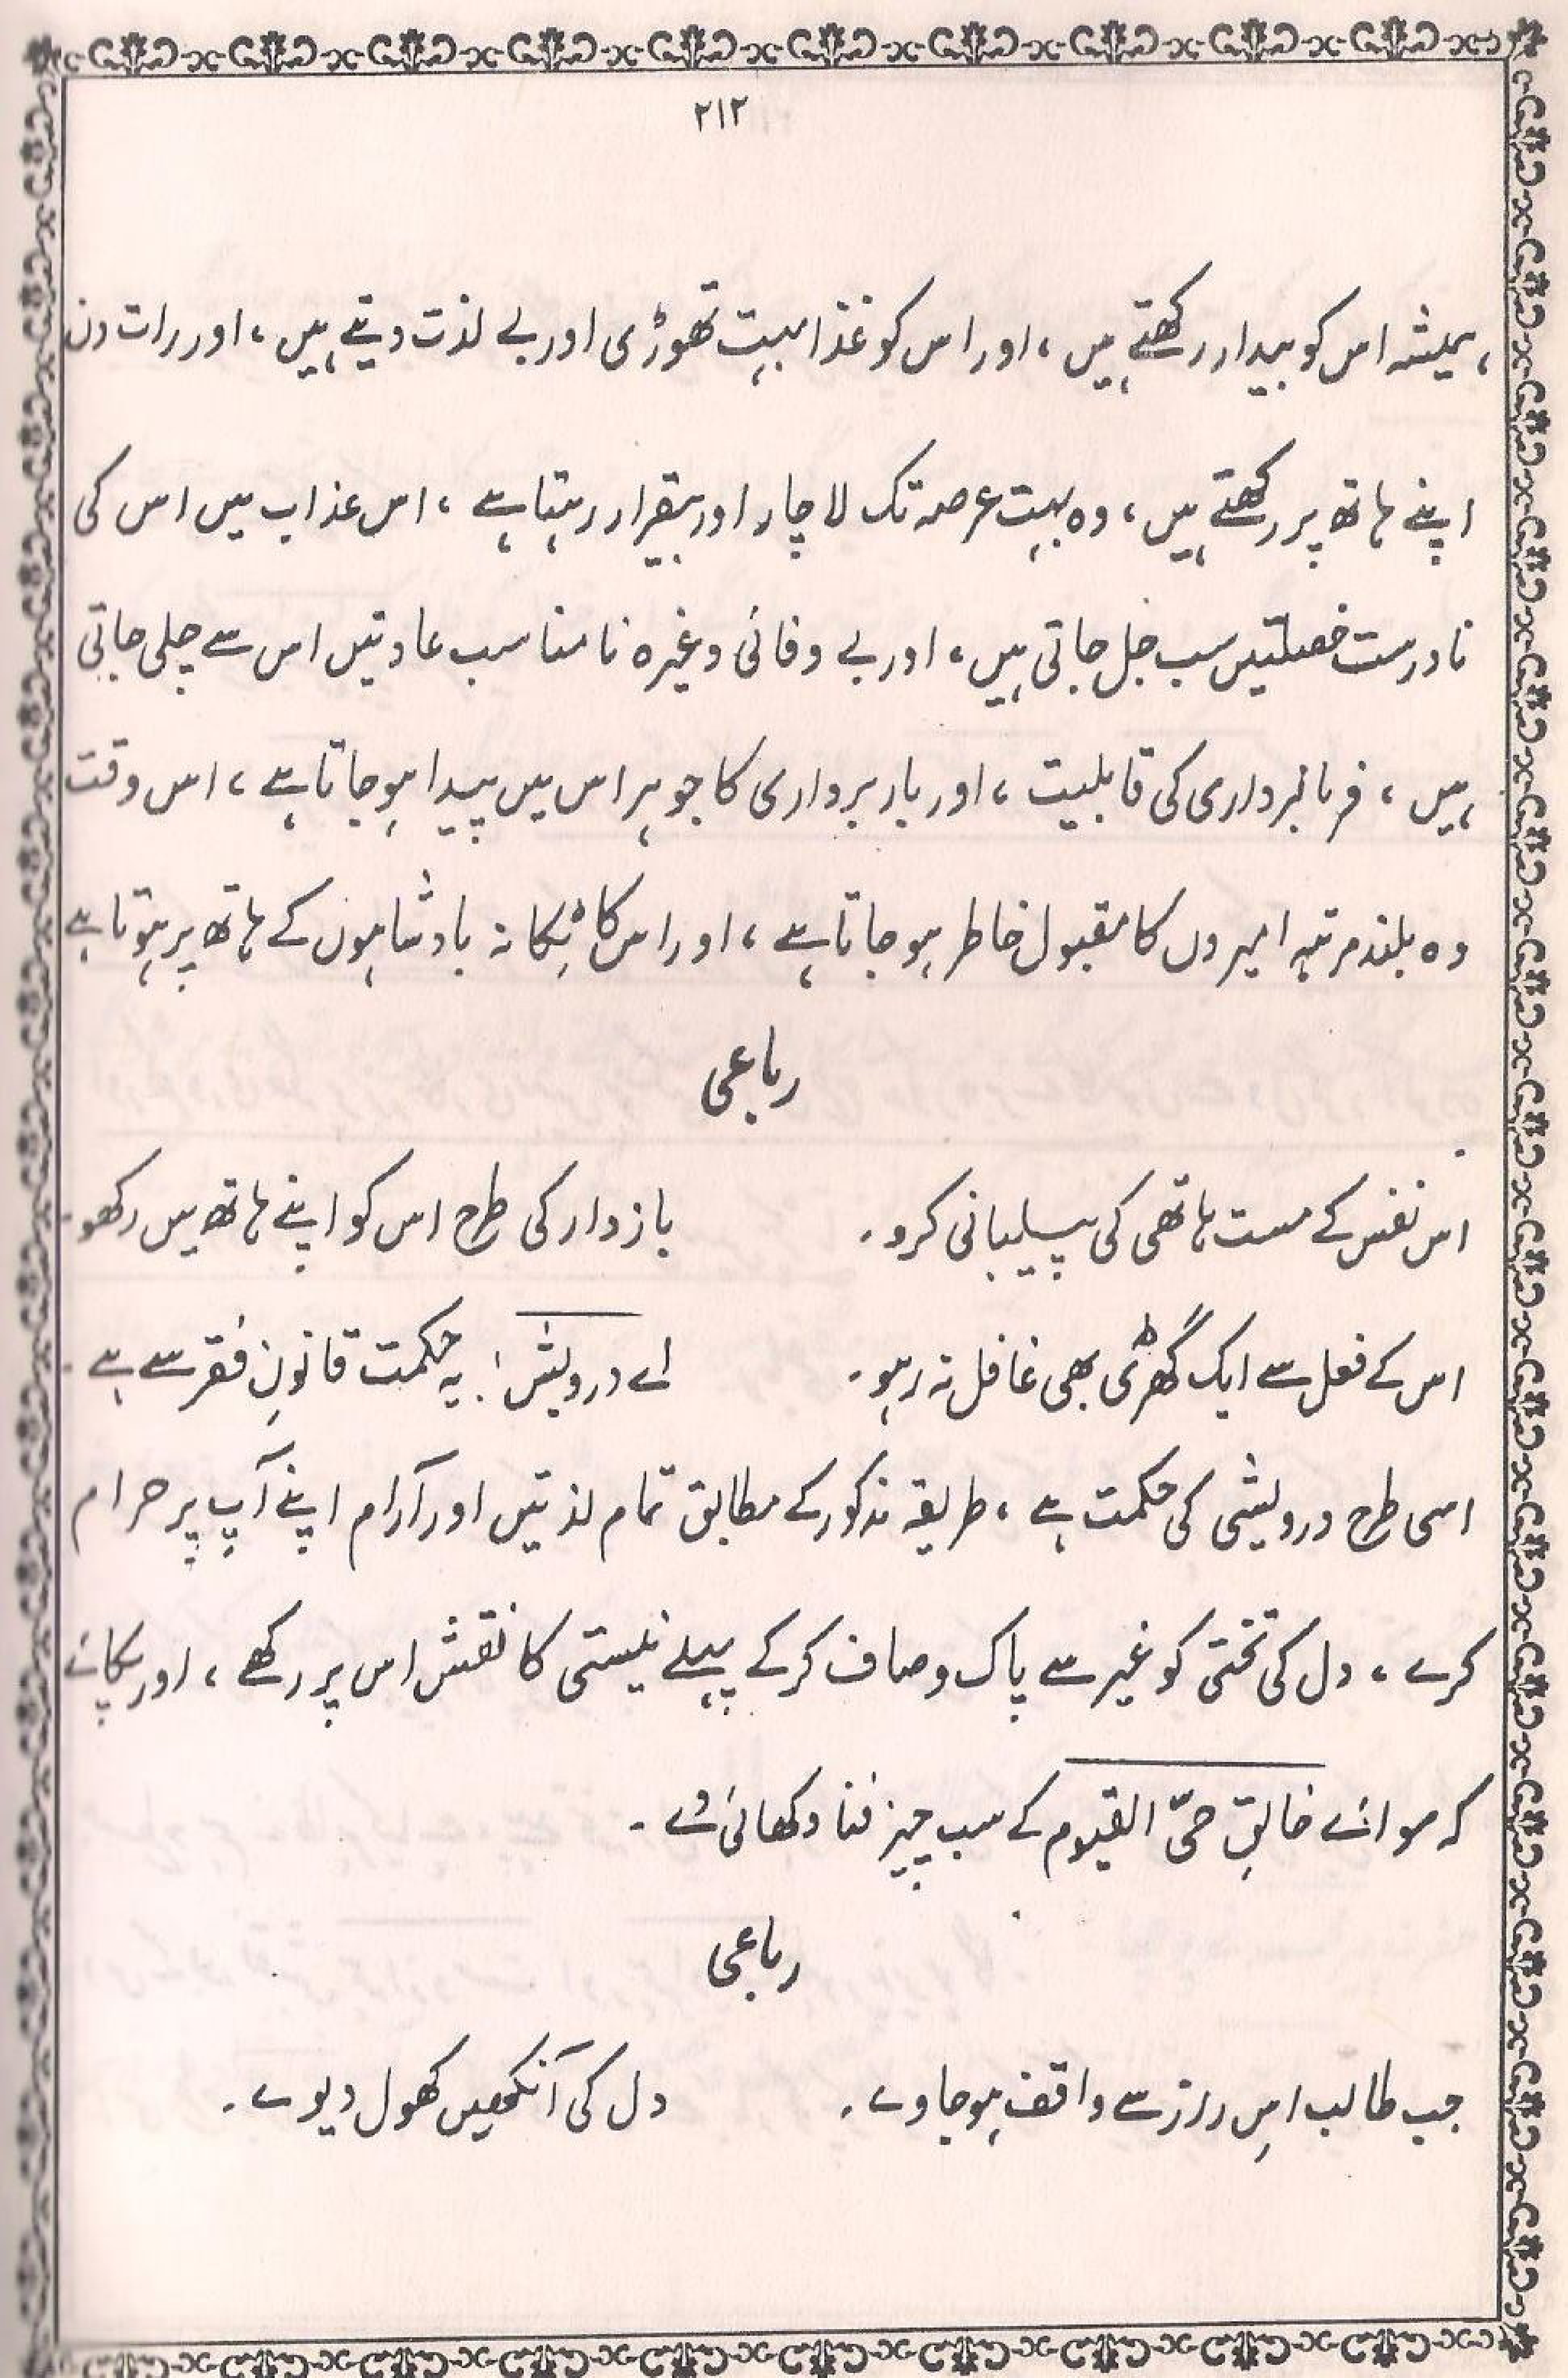 ۲۱۲
ہمیشہ اس کو بیدار رکھتے ہیں، اور اس کو غذا بہت تھوڑی اور بے لذت دیتے ہیں، اور رات دن
اپنے ہاتھ پر رکھتے ہیں، وہ بہت عرصہ تک لاچار اور بیقرار رہتا ہے، اس عذاب میں اس کی
نادرست خصلتیں سب جل جاتی ہیں، اور بے وفائی وغیرہ نامناسب عادتیں اس سے چلی جاتی
ہیں، فرمانبرداری کی قابلیت، اور باربرداری کا جوہر اس میں پیدا ہو جاتا ہے، اس وقت
وہ بلند مرتبہ امیروں کا مقبول خاطر ہو جاتا ہے، اور اس کا ٹھکانہ بادشاہوں کے ہاتھ پر ہوتا ہے
رباعی
اس نفس کے مست ہاتھی کی پیلبانی کرو۔ بازدار کی طرح اس کو اپنے ہاتھ میں رکھو۔
اس کے فعل سے ایک گھڑی بھی غافل نہ رہو۔ اے درویش! یہ حکمت قانونِ فقر سے ہے۔
اسی طرح درویشی کی حکمت ہے، طریقہ مذکور کے مطابق تمام لذتیں اور آرام اپنے آپ پر حرام
کرے، دل کی تختی کو غیر سے پاک و صاف کرکے پہلے نیستی کا نقش اس پر رکھے، اور پکائے
کہ سوائے خالقِ حیّ القیوم کے سب چیز فنا دکھائی دے۔
رباعی
جب طالب اِس راز سے واقف ہو جاوے۔ دل کی آنکھیں کھول دیوے۔